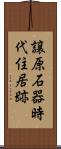 譲原石器時
代住居跡